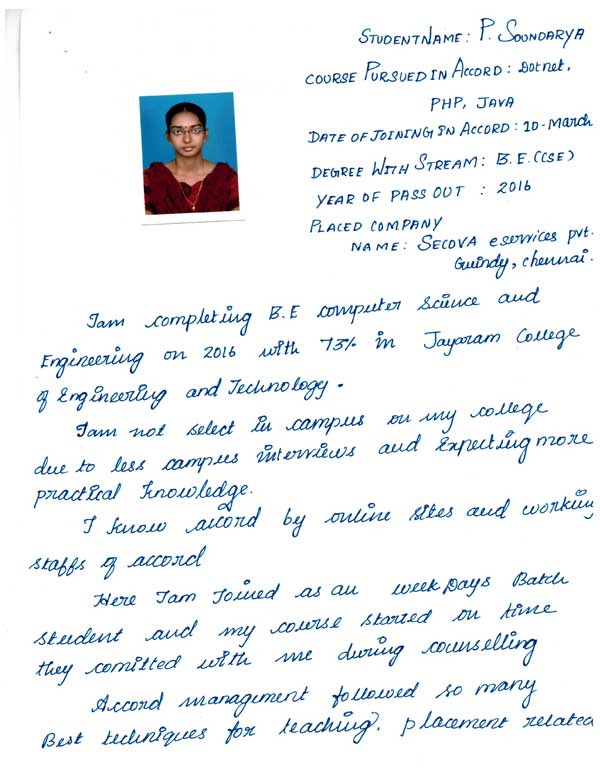 STUDENT NAME: P. SOUNDARYA
COURSE PURSUED IN ACCORD: Dotnet,
PHP, JAVA
DATE OF JOINING IN ACCORD: 10-March
DEGREE WITH STREAM: B.E.(CSE)
YEAR OF PASS OUT : 2016
PLACED COMPANY
NAME: SECOVA eservices pvt.
Guindy, chennai.
Iam completing B.E computer science and
Engineering on 2016 with 73% in Jayaram College
of Engineering and Technology.
Iam not select in campus on my college
due to less campus interviews and Expecting more
practical knowledge.
I know accord by online sites and working
staffs of accord
Here Iam Joined as an week Days Batch
student and my course started on time
they comitted with me during counselling
Accord management followed so many
Best techniques for teaching. placement related